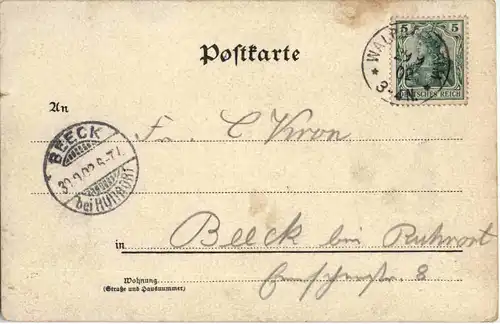 Postkarte
5 5
DEUTSCHES REICH
29 9
02
3-4 N.
An
C Kron
BEECK
30.9.02.6-7V.
bei RUHRORT
in Beeck bei Ruhrort
8
Wohnung
(Straße und Hausnummer)